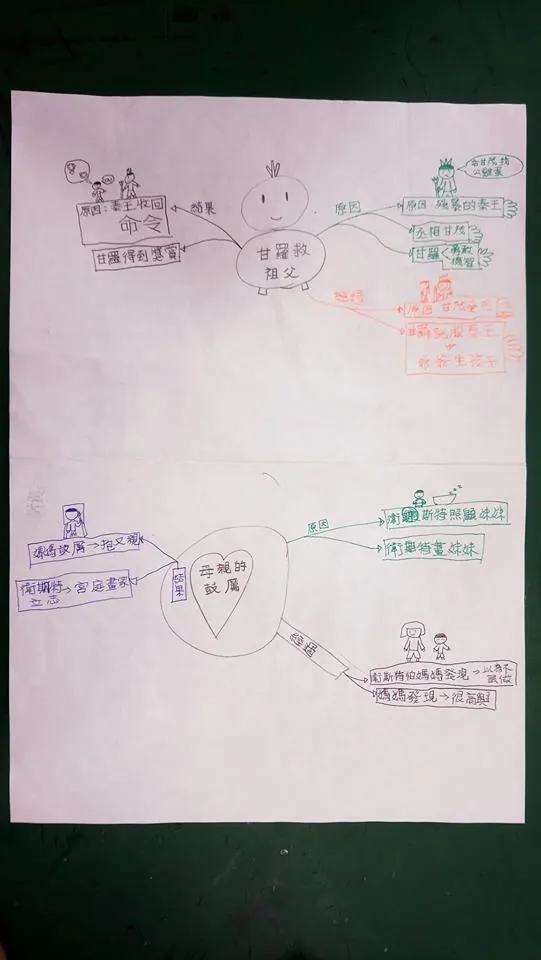 甘羅救
祖父
原因
令甘茂找
公雞蛋
原因 殘暴的秦王
丞相甘茂
甘羅
勇敢
機智
經過
原因 甘茂
甘羅說服秦王
爺爺生孩子
結果
原因:秦王收回
命令
甘羅得到獎賞
母親的
鼓厲
原因
衛斯特照顧妹妹
衛斯特畫妹妹
經過
衛斯特怕媽媽發現→以為不
媽媽發現→很高興
結果
媽媽鼓厲→抱又親
衛斯特→宮庭畫家
立志